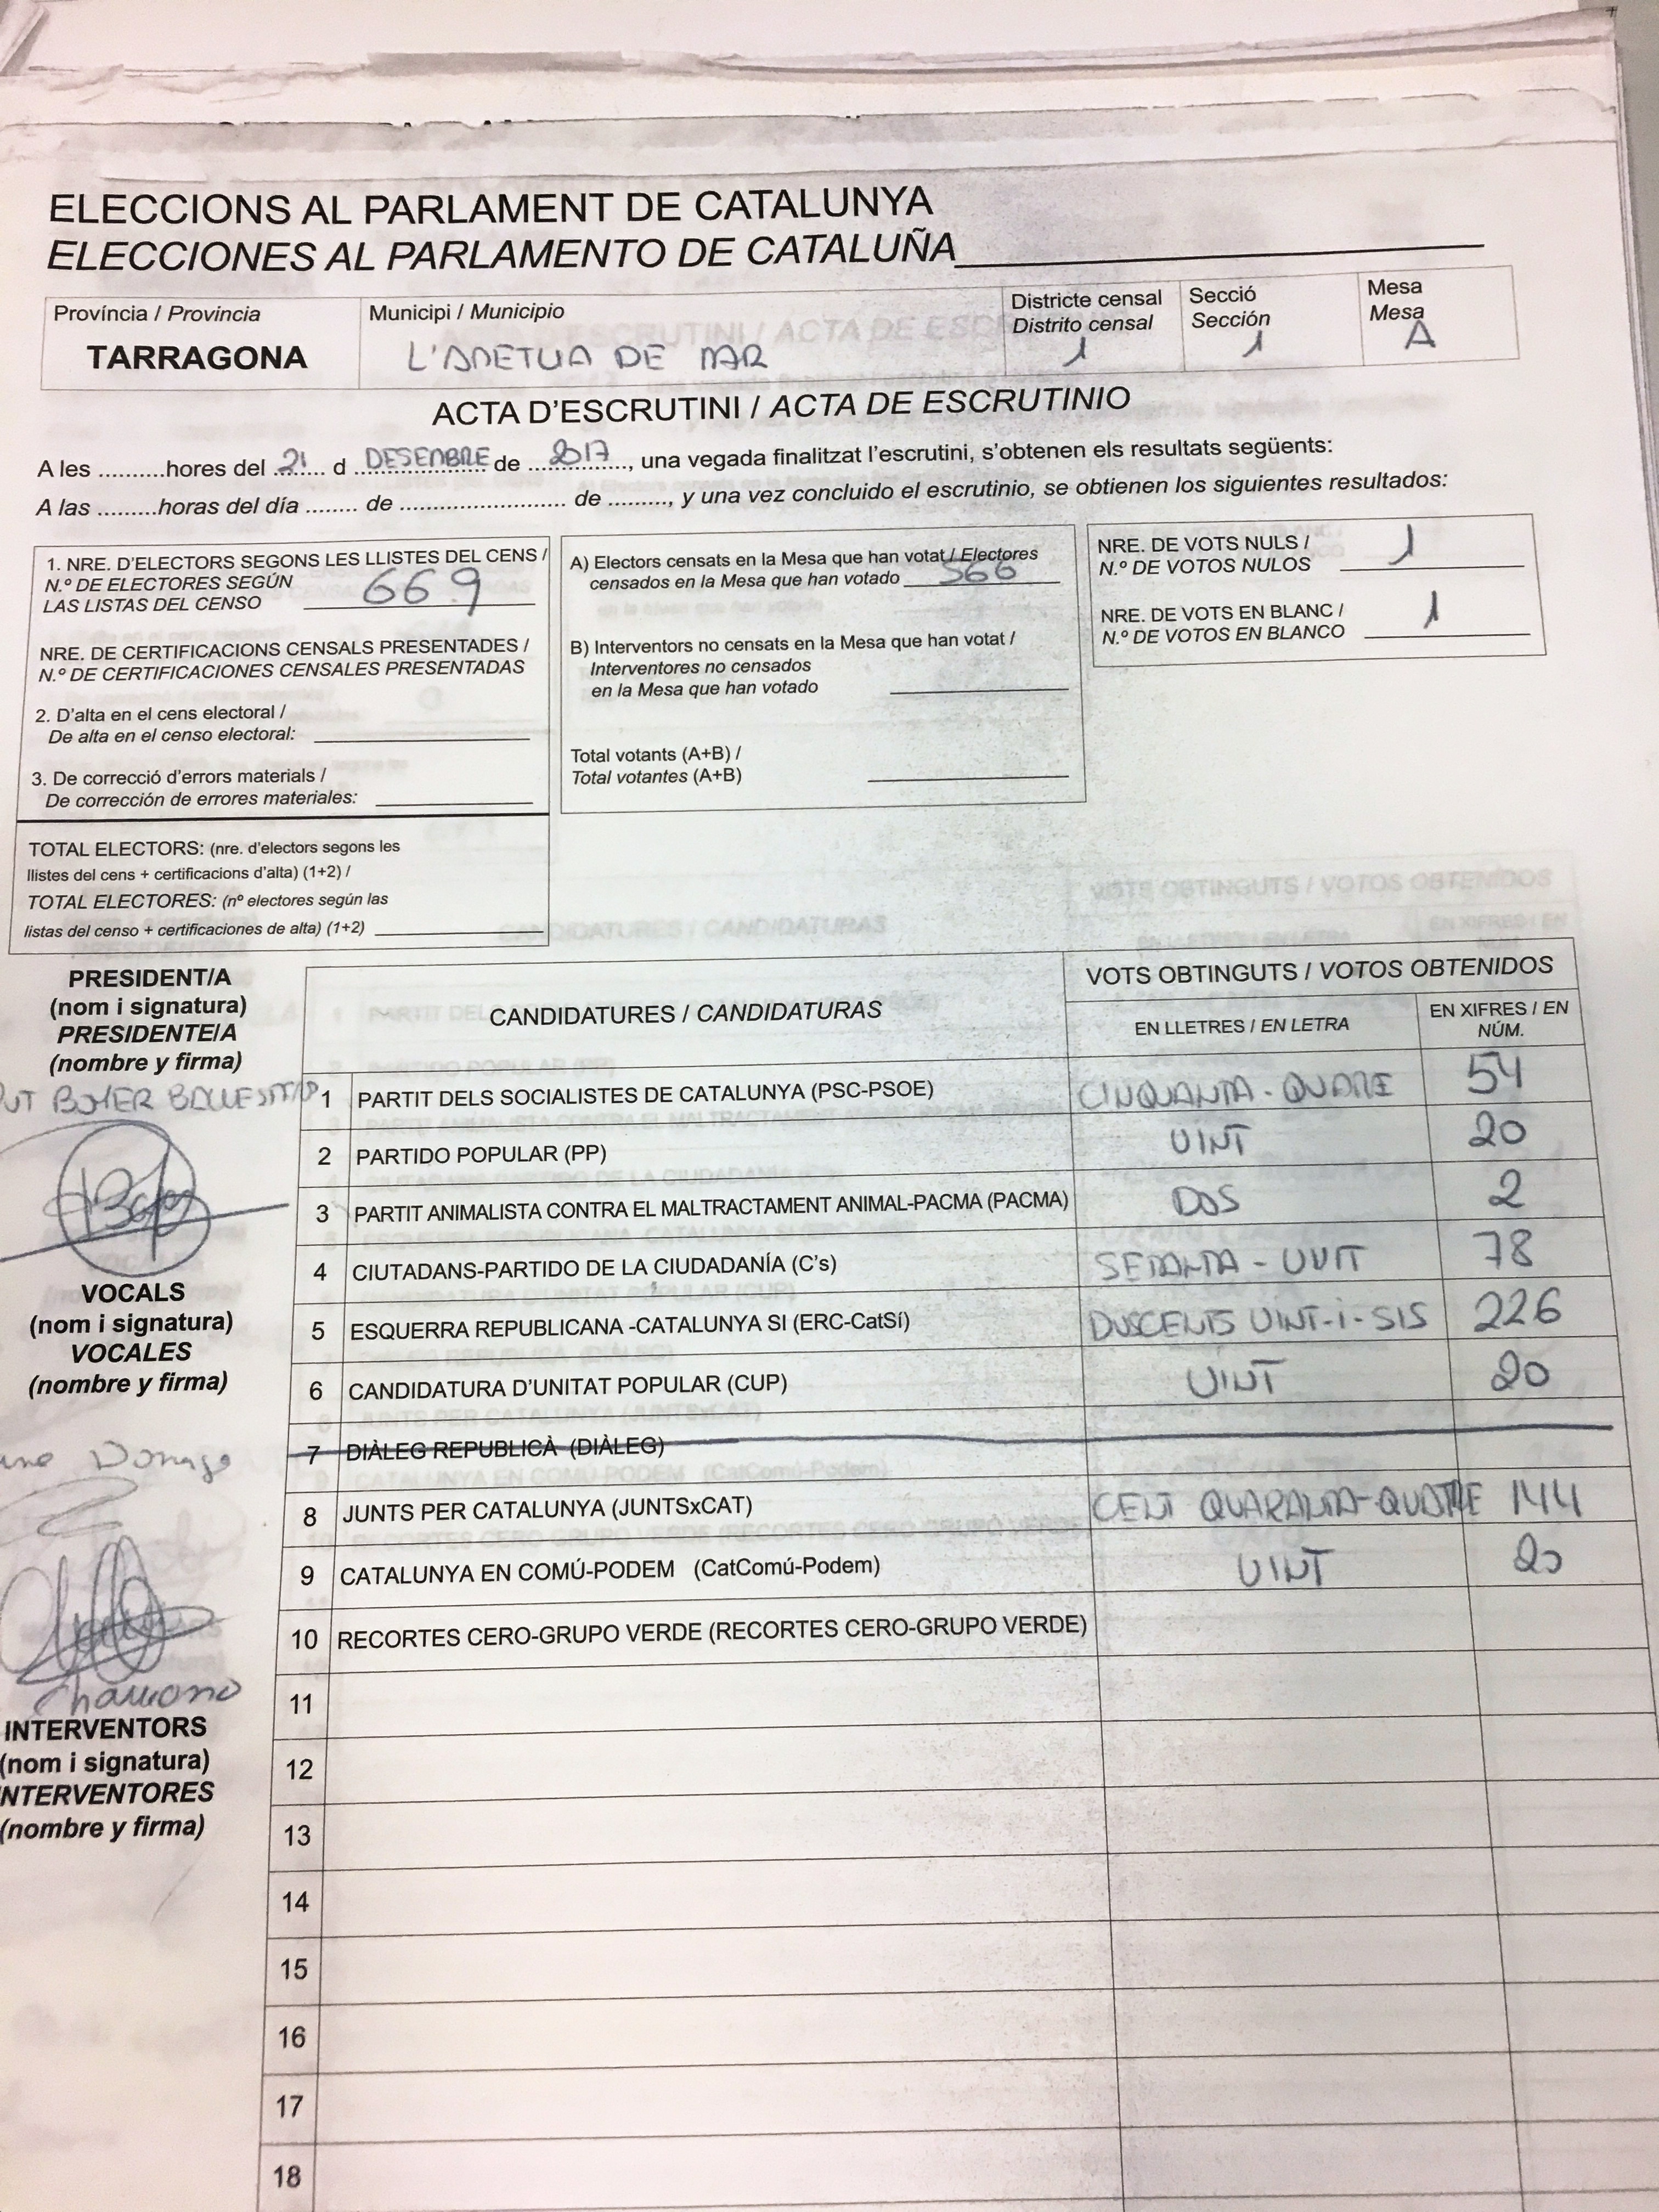 ELECCIONS AL PARLAMENT DE CATALUNYA
ELECCIONES AL PARLAMENTO DE CATALUÑA
Província / Provincia
TARRAGONA
Municipi / Municipio
DE MAR
Districte censal
Distrito censal
1
Secció
Sección
1
Mesa
Mesa
A
ACTA D'ESCRUTINI / ACTA DE ESCRUTINIO
A les ..........hores del 21 d DESEMBRE de 2017, una vegada finalitzat l'escrutini, s'obtenen els resultats següents:
A las .........horas del día ........ de .......................... de ........., y una vez concluido el escrutinio, se obtienen los siguientes resultados:
1. NRE. D'ELECTORS SEGONS LES LLISTES DEL CENS /
N.º DE ELECTORES SEGÚN
LAS LISTAS DEL CENSO 669
NRE. DE CERTIFICACIONS CENSALS PRESENTADES /
N.º DE CERTIFICACIONES CENSALES PRESENTADAS
2. D'alta en el cens electoral /
De alta en el censo electoral:
3. De correcció d'errors materials /
De corrección de errores materiales:
TOTAL ELECTORS: (nre. d'electors segons les
llistes del cens + certificacions d'alta) (1+2) /
TOTAL ELECTORES: (nº electores según las
listas del censo + certificaciones de alta) (1+2)
A) Electors censats en la Mesa que han votat / Electores
censados en la Mesa que han votado 566
B) Interventors no censats en la Mesa que han votat /
Interventores no censados
en la Mesa que han votado
Total votants (A+B) /
Total votantes (A+B)
NRE. DE VOTS NULS /
N.º DE VOTOS NULOS 1
NRE. DE VOTS EN BLANC /
N.º DE VOTOS EN BLANCO 1
PRESIDENT/A
(nom i signatura)
PRESIDENTE/A
(nombre y firma)
VOCALS
(nom i signatura)
VOCALES
(nombre y firma)
INTERVENTORS
(nom i signatura)
NTERVENTORES
(nombre y firma)
CANDIDATURES / CANDIDATURAS
VOTS OBTINGUTS / VOTOS OBTENIDOS
EN LLETRES / EN LETRA
EN XIFRES / EN
NÚM.
1 PARTIT DELS SOCIALISTES DE CATALUNYA (PSC-PSOE) CINQUANTA-QUATRE 54
2 PARTIDO POPULAR (PP) VINT 20
3 PARTIT ANIMALISTA CONTRA EL MALTRACTAMENT ANIMAL-PACMA (PACMA) DOS 2
4 CIUTADANS-PARTIDO DE LA CIUDADANÍA (C's) SETANTA-VUIT 78
5 ESQUERRA REPUBLICANA -CATALUNYA SI (ERC-CatSí) DUSCENTS VINT-I-SIS 226
6 CANDIDATURA D'UNITAT POPULAR (CUP) VINT 20
7 DIÀLEG REPUBLICÀ (DIÀLEG)
8 JUNTS PER CATALUNYA (JUNTSxCAT) CENT QUARANTA-QUATRE 144
9 CATALUNYA EN COMÚ-PODEM (CatComú-Podem) VINT 20
10 RECORTES CERO-GRUPO VERDE (RECORTES CERO-GRUPO VERDE)
11
12
13
14
15
16
17
18